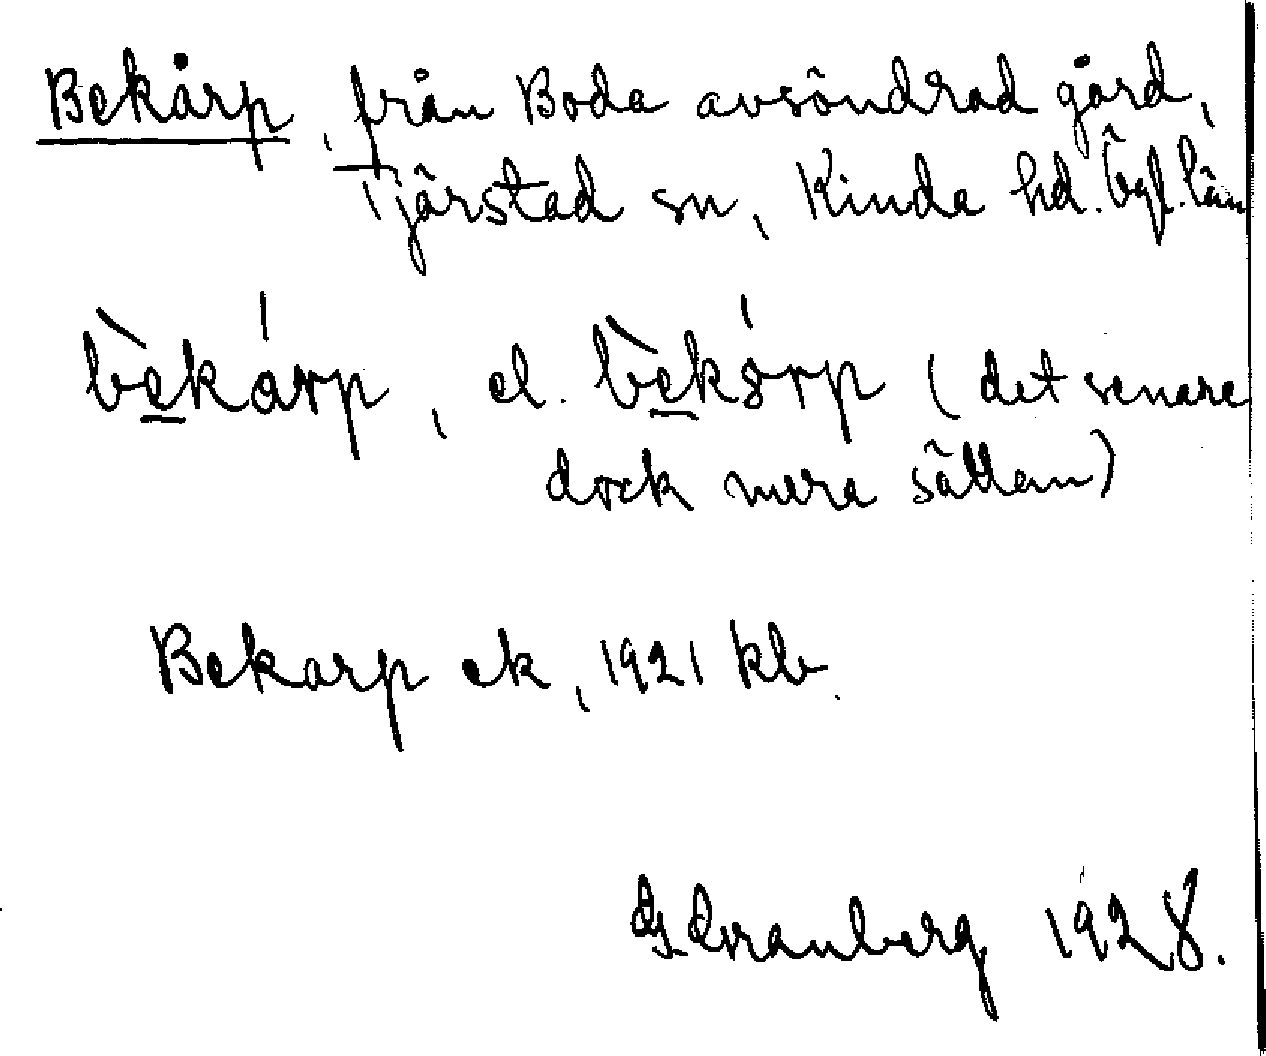 Bekårp, från Boda avsöndrad gård,
Tjärstad sn, Kinda hd. Ögl. län
bèkárp, el. bèkórp (det senare
dock mera sällan)
Bekarp ek, 1921 kb.
G. Granberg 1928.